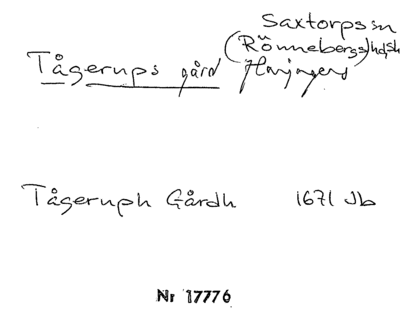 Saxtorps sn
(Rönnebergs) hd, sk
Tågerups gård Harjagers
Tågeruph Gårdh 1671 Jb
Nr 17776